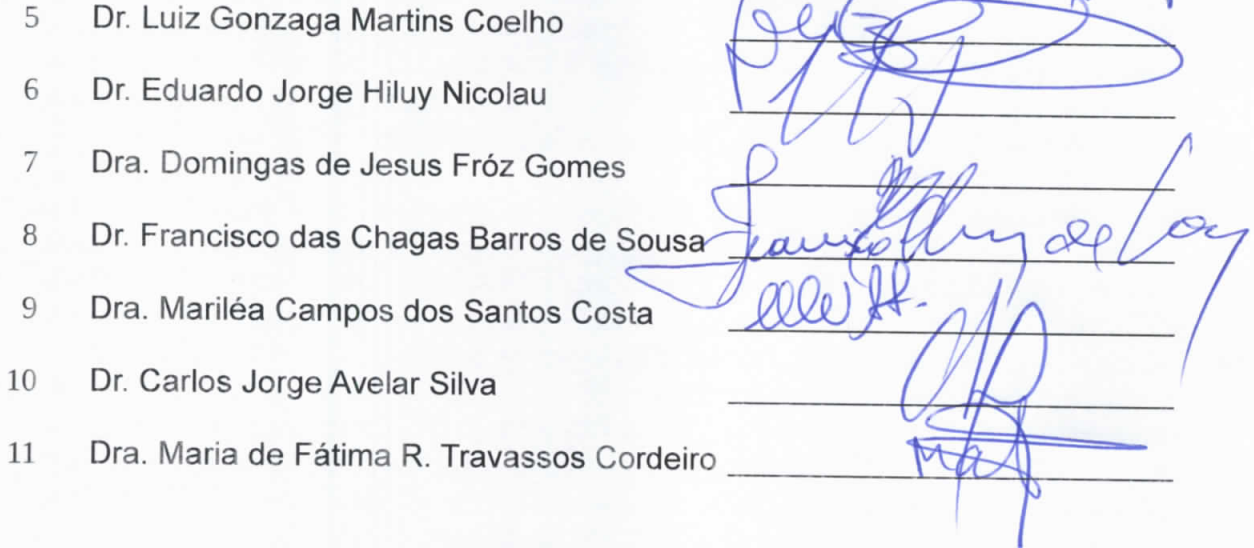 5 Dr. Luiz Gonzaga Martins Coelho
6 Dr. Eduardo Jorge Hiluy Nicolau
7 Dra. Domingas de Jesus Fróz Gomes
8 Dr. Francisco das Chagas Barros de Sousa
9 Dra. Mariléa Campos dos Santos Costa
10 Dr. Carlos Jorge Avelar Silva
11 Dra. Maria de Fátima R. Travassos Cordeiro